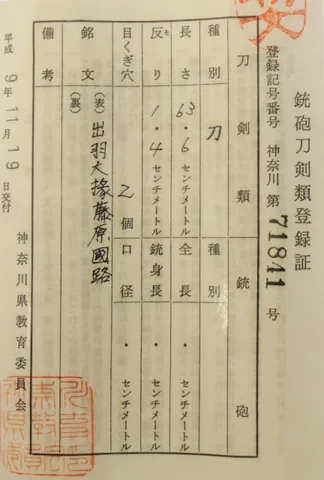 銃砲刀剣類登録証
登録記号番号 神奈川 第 71841 号
刀剣類 銃砲
種別 刀 種別
長さ 63・6 センチメートル 全長 ・ センチメートル
反り 1・4 センチメートル 銃身長 ・ センチメートル
目くぎ穴 2個 口径 ・ センチメートル
銘文 (表) 出羽大掾藤原國路
(裏)
備考
平成 9年 11月 19日交付
神奈川県教育委員会